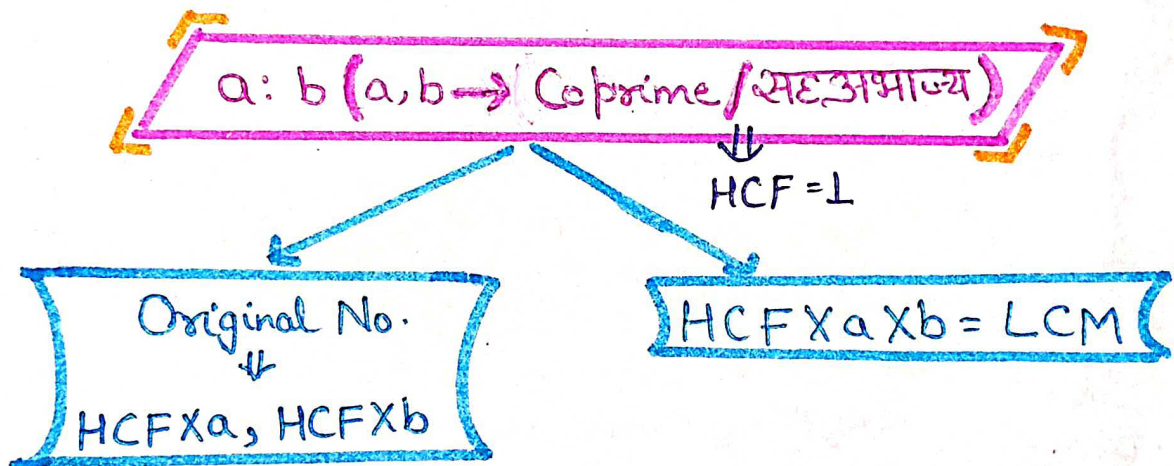 a: b (a,b → Coprime/सहअभाज्य)
⇓
HCF = 1
Original No.
⇓
HCFXa, HCFXb
HCFXaXb = LCM